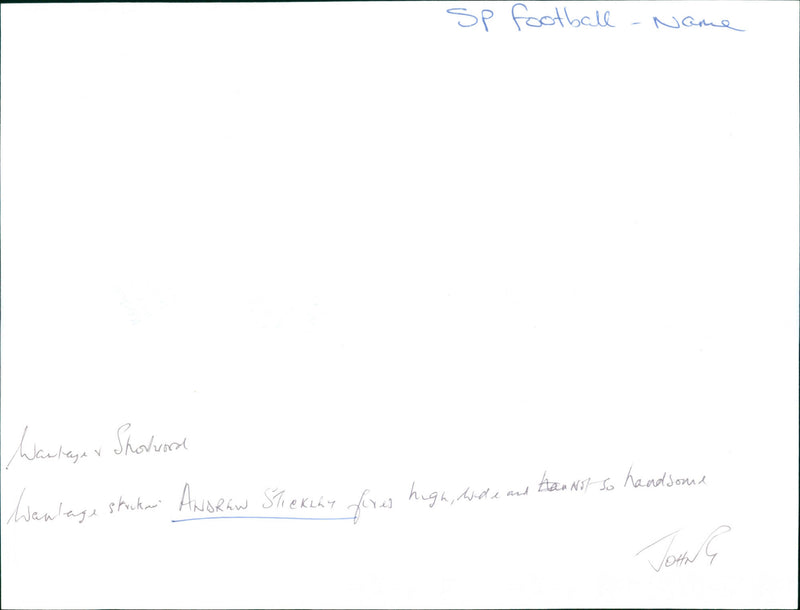 SP Football - Name
Wantage v Shortwood
Wantage striker ANDREW STICKLEY fires high, wide and not so handsome
JOHN G